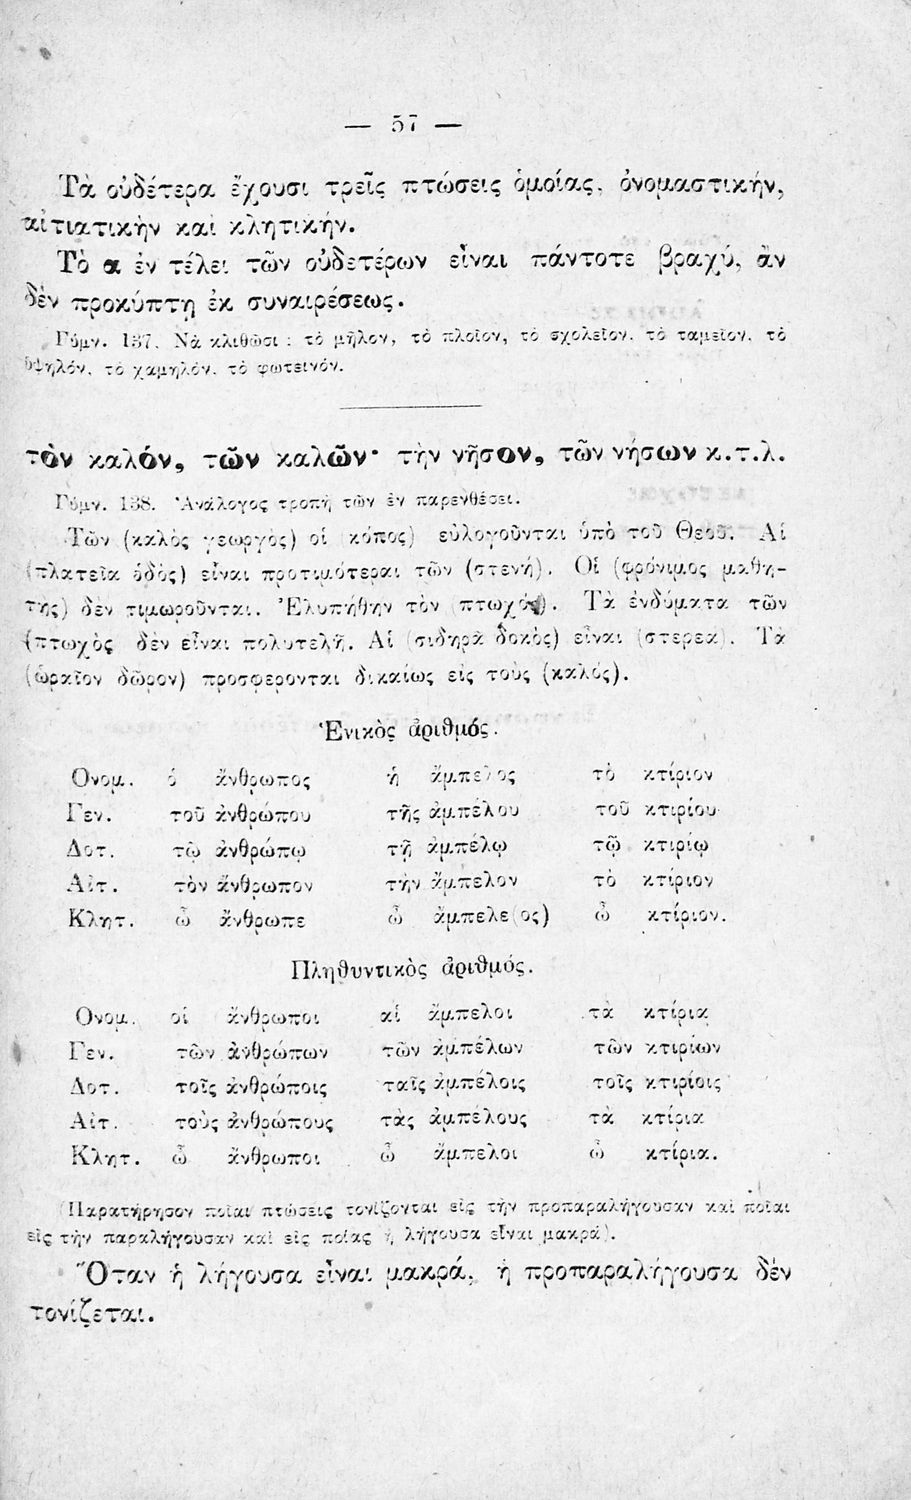 — 57 —
Τὰ οὐδέτερα ἔχουσι τρεῖς πτώσεις ὁμοίας, ὀνομαστικήν,
αἰτιατικὴν καὶ κλητικήν.
Τὸ α ἐν τέλει τῶν οὐδετέρων εἶναι πάντοτε βραχύ, ἂν
δὲν προκύπτῃ ἐκ συναιρέσεως.
Γύμν. 137. Νὰ κλιθῶσι : τὸ μῆλον, τὸ πλοῖον, τὸ σχολεῖον, τὸ ταμεῖον, τὸ
ὑψηλόν, τὸ χαμηλόν, τὸ φωτεινόν.
τὸν καλόν, τῶν καλῶν· τὴν νῆσον, τῶν νήσων κ.τ.λ.
Γύμν. 138. Ἀνάλογος τροπὴ τῶν ἐν παρενθέσει.
Τῶν (καλὸς γεωργὸς) οἱ (κόπος) εὐλογοῦνται ὑπὸ τοῦ Θεοῦ. Αἱ
(πλατεῖα ὁδὸς) εἶναι προτιμότεραι τῶν (στενή). Οἱ (φρόνιμος μαθη-
τὴς) δὲν τιμωροῦνται. Ἐλυπήθην τὸν (πτωχός). Τὰ ἐνδύματα τῶν
(πτωχὸς δὲν εἶναι πολυτελῆ. Αἱ (σιδηρᾶ δοκὸς) εἶναι (στερεά). Τὰ
(ὡραῖον δῶρον) προσφέρονται δικαίως εἰς τοὺς (καλός).
Ἑνικὸς ἀριθμός.
Ὀνομ. ὁ ἄνθρωπος ἡ ἄμπελος τὸ κτίριον
Γεν. τοῦ ἀνθρώπου τῆς ἀμπέλου τοῦ κτιρίου
Δοτ. τῷ ἀνθρώπῳ τῇ ἀμπέλῳ τῷ κτιρίῳ
Αἰτ. τὸν ἄνθρωπον τὴν ἄμπελον τὸ κτίριον
Κλητ. ὦ ἄνθρωπε ὦ ἄμπελε(ος) ὦ κτίριον.
Πληθυντικὸς ἀριθμός.
Ὀνομ. οἱ ἄνθρωποι αἱ ἄμπελοι τὰ κτίρια
Γεν. τῶν ἀνθρώπων τῶν ἀμπέλων τῶν κτιρίων
Δοτ. τοῖς ἀνθρώποις ταῖς ἀμπέλοις τοῖς κτιρίοις
Αἰτ. τοὺς ἀνθρώπους τὰς ἀμπέλους τὰ κτίρια
Κλητ. ὦ ἄνθρωποι ὦ ἄμπελοι ὦ κτίρια.
(Παρατήρησον ποῖαι πτώσεις τονίζονται εἰς τὴν προπαραλήγουσαν καὶ ποῖαι
εἰς τὴν παραλήγουσαν καὶ εἰς ποίας ἡ λήγουσα εἶναι μακρά).
Ὅταν ἡ λήγουσα εἶναι μακρά, ἡ προπαραλήγουσα δὲν
τονίζεται.